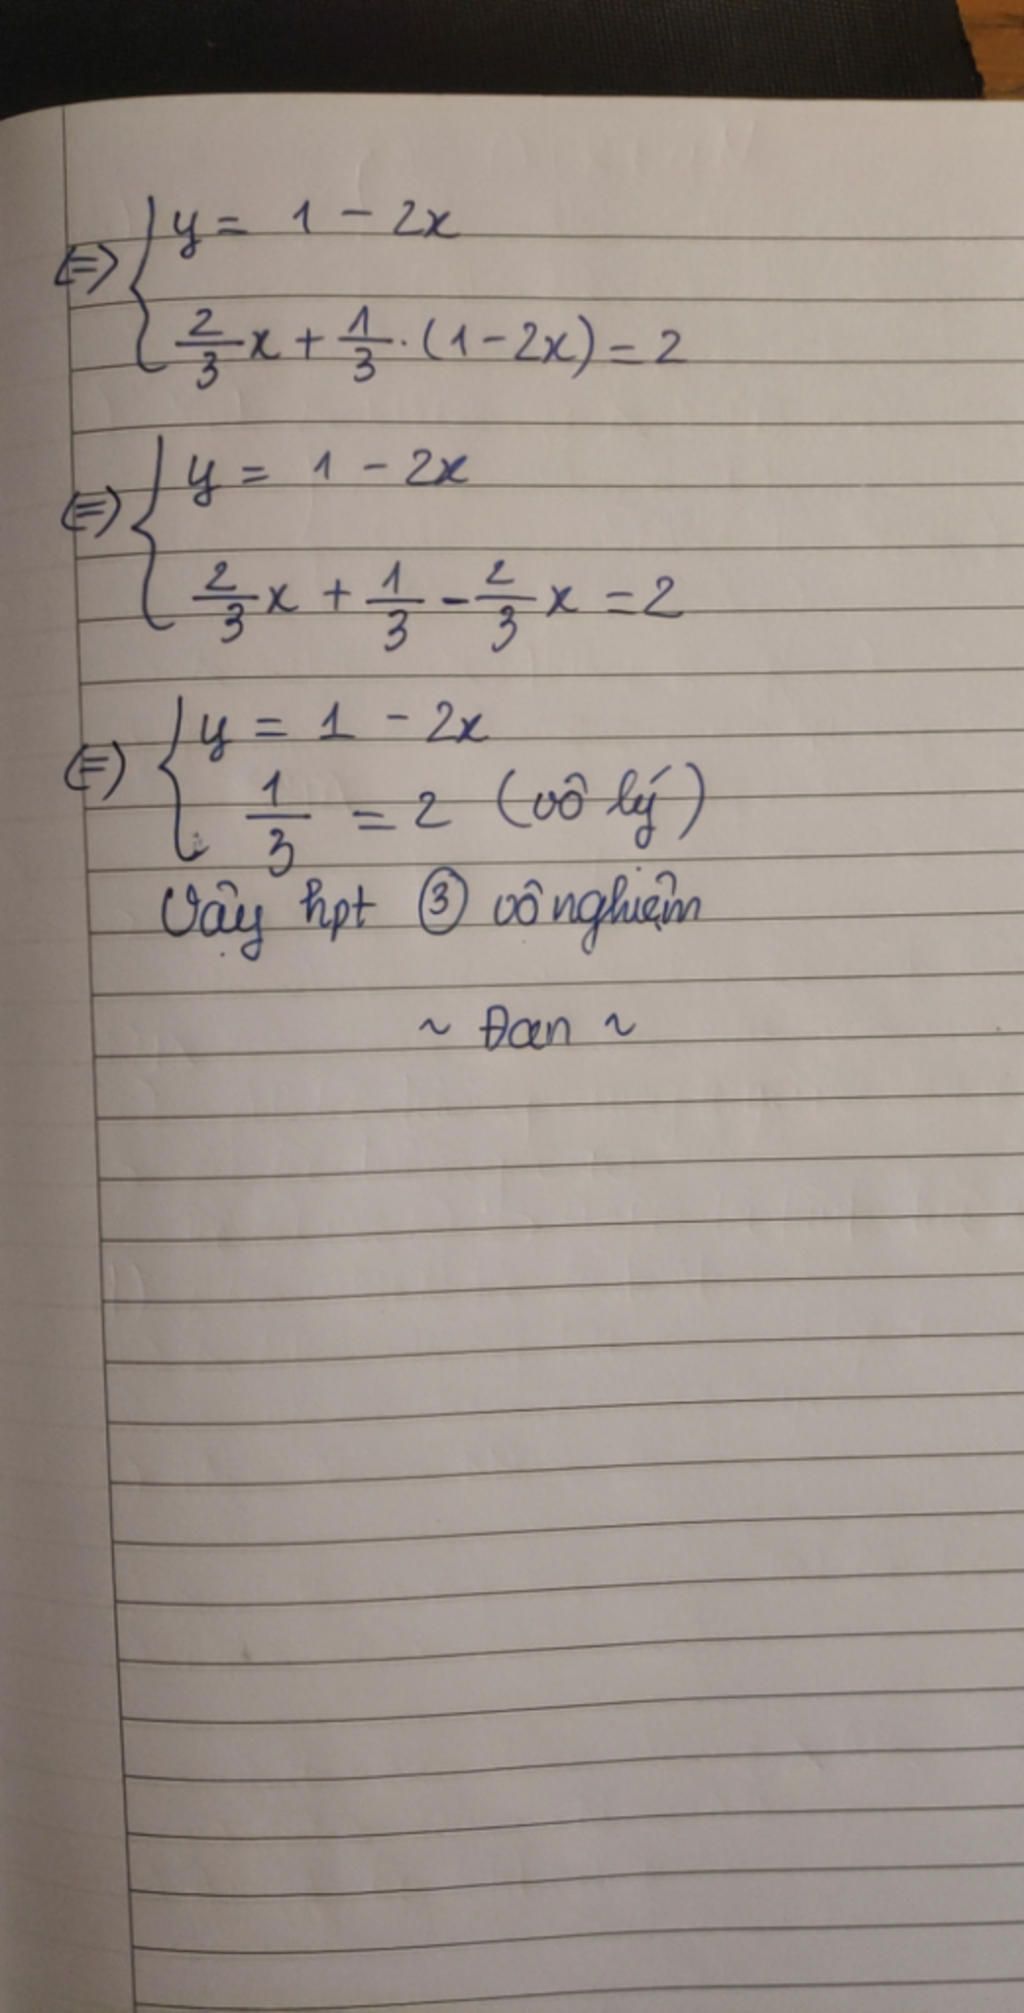 ⇔ { y = 1 - 2x
2/3 x + 1/3 . (1 - 2x) = 2
⇔ { y = 1 - 2x
2/3 x + 1/3 - 2/3 x = 2
⇔ { y = 1 - 2x
1/3 = 2 (vô lý)
Vậy hpt ③ vô nghiệm
~ Đan ~